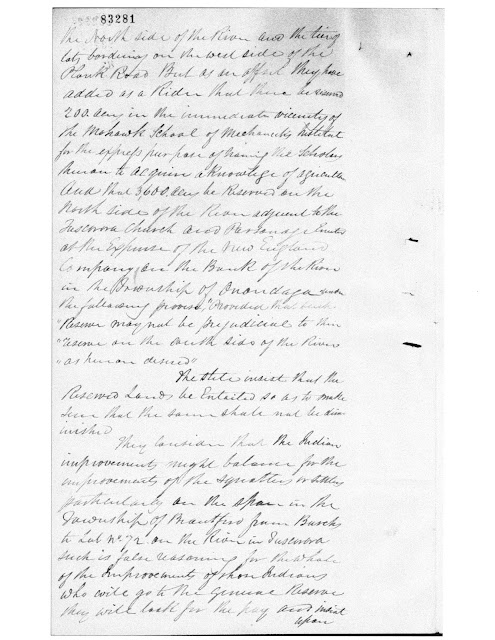 83281
the North side of the River and the tier of
lots bordering on the west side of the
Plank Road But as an offset they have
added as a Rider that there be reserved
200 acres in the immediate vicinity of
the Mohawk School of Mechanicks Institut
for the express purpose of the Scholars
to acquire a Knowledge of agricultur
And that 3,600 acres be Reserved on the
North side of the River adjacent to the
Tuscarora Church and Parsonage
at the Expense of the New England
Company on the Bank of the River
in the Township of Onondaga
the following proviso, "Provided that such
"Reserve may not be prejudicial to the
"reserve on the south side of the River
"as desired"
The still insist that the
Reserved Lands be Entailed so as to make
sure that the same shall not be dim
inished
They Consider that the Indian
improvements might balance for the
improvements of the Squatters or Settlers
particularly on the span in the
Township of Brantford from
to Lot No 72 on the River in Tuscarora
such is false reasoning for the whole
of the Improvements of those Indians
who will go to the General Reserve
they will look for the pay and insist
upon